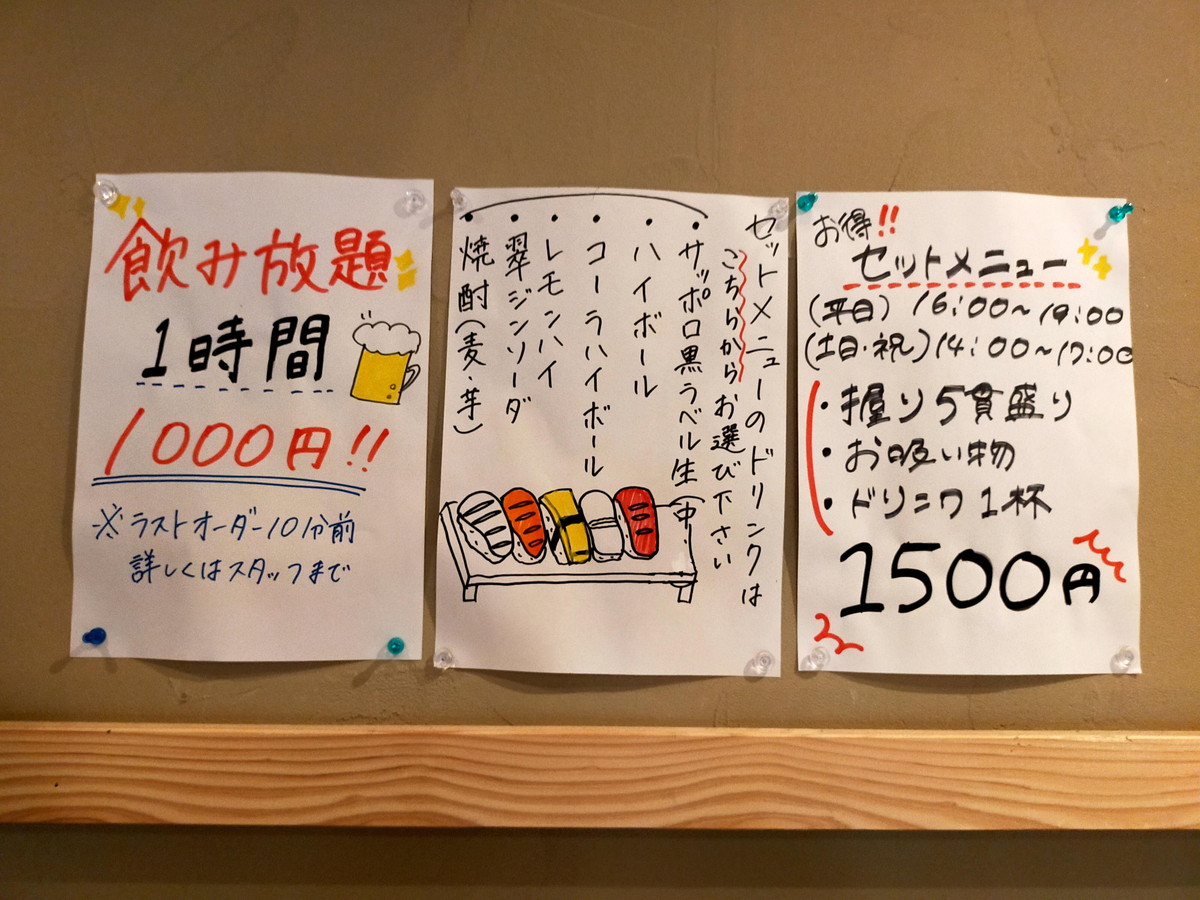 飲み放題
1時間
1000円!!
※ラストオーダー10分前
詳しくはスタッフまで
セットメニューのドリンクは
こちらからお選び下さい
・サッポロ黒ラベル生(中)
・ハイボール
・コーラハイボール
・レモンハイ
・翠ジンソーダ
・焼酎(麦・芋)
お得!!
セットメニュー
(平日) 16:00~19:00
(土日・祝)14:00~17:00
・握り5貫盛り
・お吸い物
・ドリンク1杯
1500円